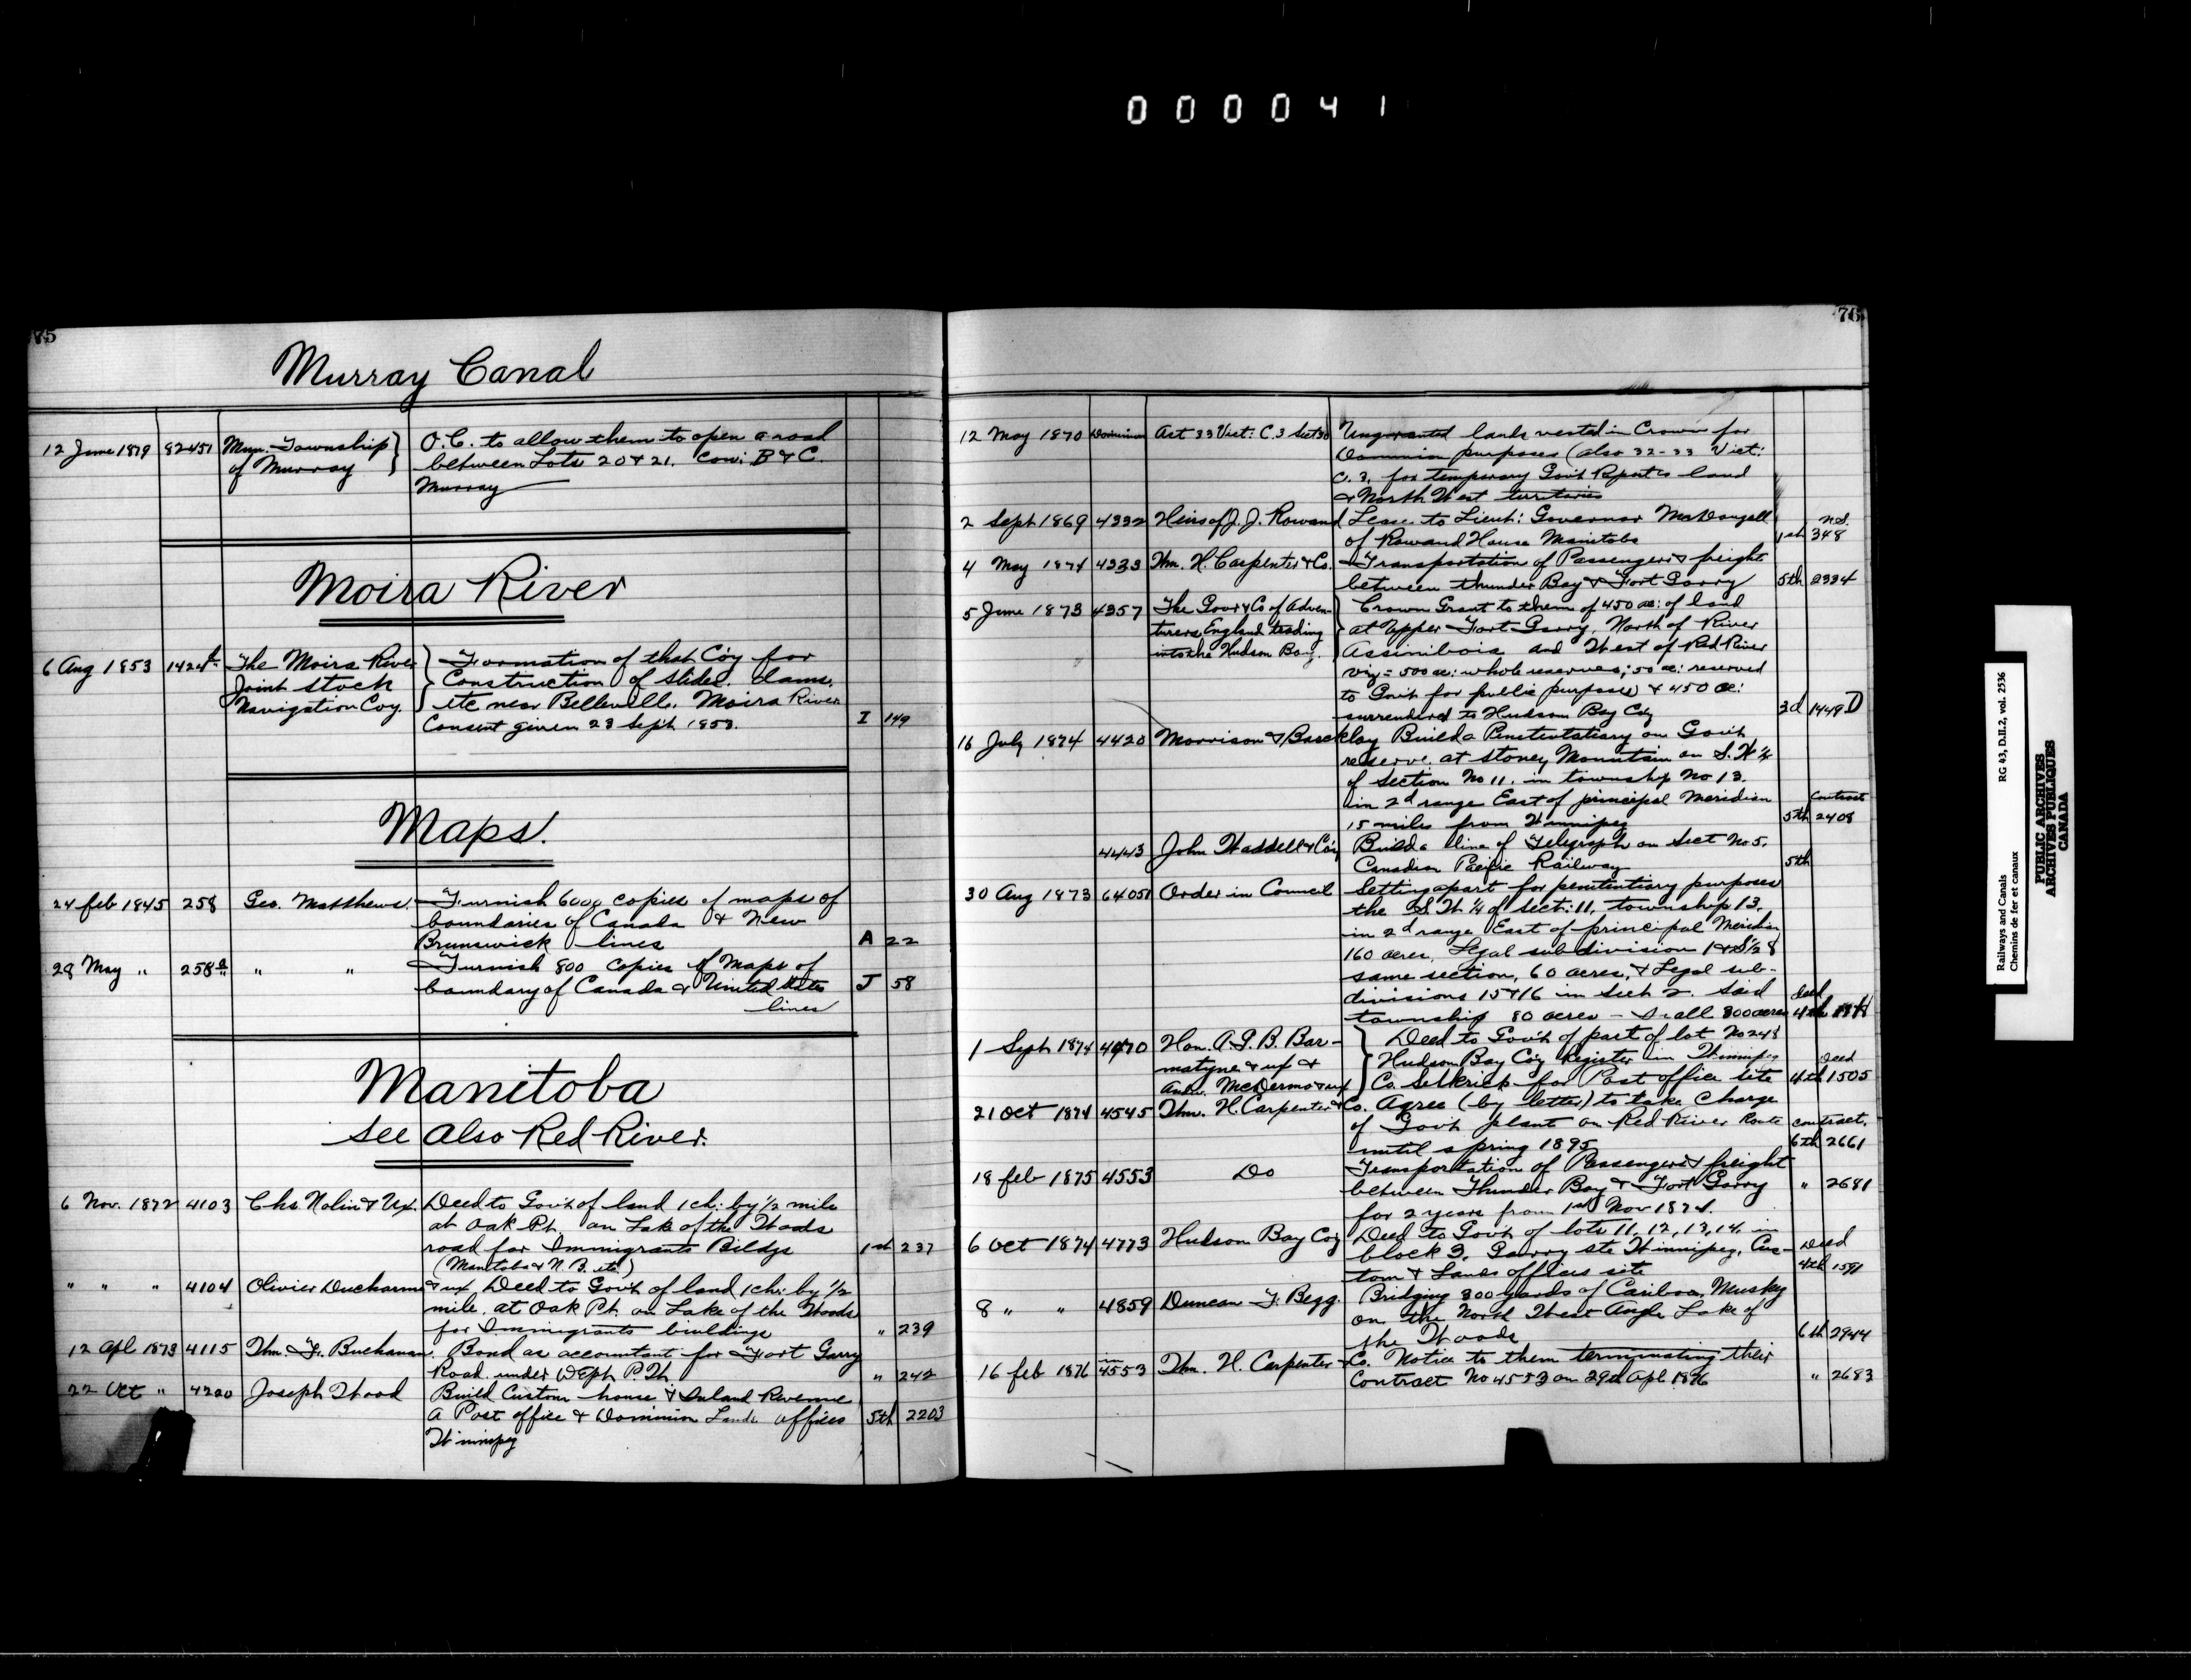 000041
75
Murray Canal
12 June 1879 82451 Mun. Township O.C. to allow them to open a road
of Murray between Lots 20 & 21. Con: B & C.
Murray
Moira River
6 Aug 1853 1424 The Moira River Formation of that Co'y for
Joint Stock Construction of slides. dams.
Navigation Coy. etc near Belleville. Moira River
Consent given 23 Sept 1853. I 149
Maps.
24 feb 1845 258 Geo. Matthews. Furnish 6000 copies of maps of
boundaries of Canada & New
Brunswick lines A 22
28 May " 258a " " Furnish 800 copies of Maps of
boundary of Canada & United States J 58
lines
Manitoba
See Also Red River.
6 Nov. 1872 4103 Chs Nolin & Ux. Deed to Govt of land 1 ch: by 1/2 mile
at Oak Pt. on Lake of the Woods
road for Immigrants Bildgs 1st 237
(Manitoba & N.B. etc.)
" " " 4104 Olivier Ducharme & ux, Deed to Govt of land 1 ch: by 1/2
mile. at Oak Pt. on Lake of the Woods
for Immigrants buildings " 239
12 Apl 1873 4115 Thm. F. Buchanan. Bond as accountant for Fort Garry
Road. under " 242
22 Oct " 4220 Joseph Wood Build Custom house & Inland Revenue
A Post office & Dominion Lands offices 5th 2203
Winnipeg
76
12 May 1870 Dominion Act 33 Vict: C.3 Sect 30 Ungranted lands vested in Crown for
Dominion purposes (also 32-33 Vict:
C. 3. for temporary Govt Rupert's land
& North West territories
2 Sept 1869 4332 Heirs of J. J. Rowand Lease to Lieut: Governor McDougall n.s.
of Rowand House Manitoba 1st 348
4 May 1874 4333 Thm. H. Carpenter & Co. Transportation of Passengers & freight
between thunder Bay & Fort Garry 5th 2334
5 June 1873 4357 The Govr & Co of Adven- Crown Grant to them of 450 ac: of land
turers England trading at Upper Fort Garry, North of River
into the Hudson Bay. Assiniboia and West of Red River
viz = 500 ac: whole reserves; 50 ac: reserved
to Govt for public purposes & 450 ac:
surrendered to Hudson Bay Coy 3d 1449 D
16 July 1874 4420 Morrison & Barcklay Build a Penitentiary on Govt
reserve. at Stoney Mountain on S.W 1/4
of section No 11. in township No 13.
in 2d range East of principal Meridian Contract
15 miles from Winnipeg 5th 2408
4443 John Waddell & Co'y Build a line of Telegraph on Sect No 5.
Canadian Pacific Railway 5th
30 Aug 1873 64051 Order in Council Setting apart for penitentiary purposes
the S.W 1/4 of sect: 11. township 13.
in 2d range East of principal Meridian
160 acres, Legal subdivision 1 & S 1/2 8
same section, 60 acres, & Legal sub-
divisions 15 & 16 in Sect 2. said deed
township 80 acres - In all 300 acres 4th
1 Sept 1874 4470 Hon. A.G.B. Ban- Deed to Govt of part of lot No 248
natyne & ux & Hudson Bay Coy Register in Winnipeg Deed
Andw. McDermo & ux Co. Selkrick for Post office site 4th 1505
21 Oct 1874 4545 Thm. H. Carpenter & Co. Agree (by letter) to take Charge
of Govt plant on Red River Route contract.
until spring 1895 6th 2661
18 feb 1875 4553 Do Transportation of Passengers & freight
between Thunder Bay & Fort Garry " 2681
for 2 years from 1st Nov 1874.
6 Oct 1874 4773 Hudson Bay Coy Deed to Govt of lots 11, 12, 13, 14. in
block 3. Garry ste Winnipeg. Cus- Deed
tom & Lands offices site 4th 1591
8 " " 4859 Duncan F. Begg. Bridging 300 yards of Cariboo, Muskeg
on the North West Angle Lake of
the Woods 6th 2944
16 feb 1876 4553 Thm. H. Carpenter & Co. Notice to them terminating their
Contract No 4553 on 29th Apl 1876 " 2683
Railways and Canals RG 43, D.II.2, vol. 2536
Chemins de fer et canaux
PUBLIC ARCHIVES
ARCHIVES PUBLIQUES
CANADA